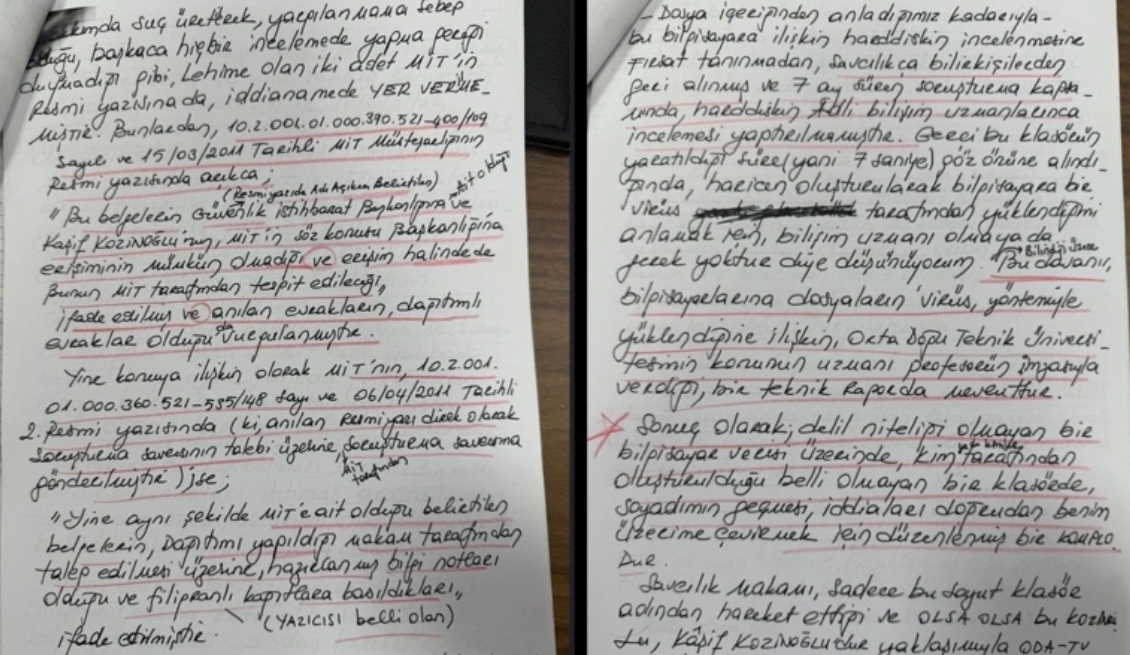 suç üreterek, yargılanmama sebep
olduğu, başkaca hiçbir incelemede yapma gereği
duymadığı gibi, Lehime olan iki adet MİT'in
Resmi yazısına da, iddianamede YER VERME-
MİŞTİR. Bunlardan, 10.2.001.01.000.390.521-400/109
Sayılı ve 15/03/2011 Tarihli MİT Müsteşarlığının
Resmi yazısında açıkça;
(Resmi yazıda Adı Açıkça Belirtilen) ait olduğu
"Bu belgelerin Güvenlik istihbarat Başkanlığına ve
Kaşif KOZİNOĞLU'nun, MİT'in söz konusu Başkanlığına
erişiminin mümkün olmadığı ve erişim halinde de
Bunun MİT tarafından tespit edileceği,
ifade edilmiş ve anılan evrakların, dağıtımlı
evraklar olduğu da vurgulanmıştır.
Yine konuya ilişkin olarak MİT'nın, 10.2.001.
01.000.360.521-535/148 sayı ve 06/04/2011 Tarihli
2. Resmi yazısında (ki, anılan Resmi yazı direk olarak
Soruşturma savcısının talebi üzerine, soruşturma savcısına
MİT tarafından
gönderilmiştir) ise;
"Yine aynı şekilde MİT'e ait olduğu belirtilen
belgelerin, Dağıtımı yapıldığı makam tarafından
talep edilmesi üzerine, hazırlanmış bilgi notları
olduğu ve filigranlı kağıtlara basıldıkları,,
(YAZICISI belli olan)
ifade edilmiştir.
- Dosya içeriğinden anladığımız kadarıyla -
bu bilgisayara ilişkin harddiskin incelenmesine
FIRSAT tanınmadan, savcılıkça bilirkişilerden
geri alınmış ve 7 ay süren soruşturma kapsa-
mında, harddiskin Adli bilişim uzmanlarınca
incelemesi yaptırılmamıştır. Gerçi bu klasörün
yaratıldığı süre (yani 7 saniye) göz önüne alındı-
ğında, haricen oluşturularak bilgisayara bir
virüs tarafından yüklendiğini
anlamak için, bilişim uzmanı olmaya da
gerek yoktur diye düşünüyorum. "Bu davanın,
bilgisayarlarına dosyaların 'virüs, yöntemiyle
yüklendiğine ilişkin, Orta Doğu Teknik Üniversi-
tesinin konunun uzmanı profesörün imzasıyla
verdiği, bir teknik Raporda mevcuttur.
Sonuç olarak; delil niteliği olmayan bir
bilgisayar verisi üzerinde, kim tarafından
oluşturulduğu belli olmayan bir klasörde,
soyadımın geçmesi, iddiaları doğrudan benim
üzerime çevirmek için düzenlenmiş bir KOMPLO
DUR.
Savcılık makamı, sadece bu soyut klasör
adından hareket ettiği ve OLSA OLSA bu KOZİNOĞ
LU, Kâşif KOZİNOĞLU'dur yaklaşımıyla ODA-TV